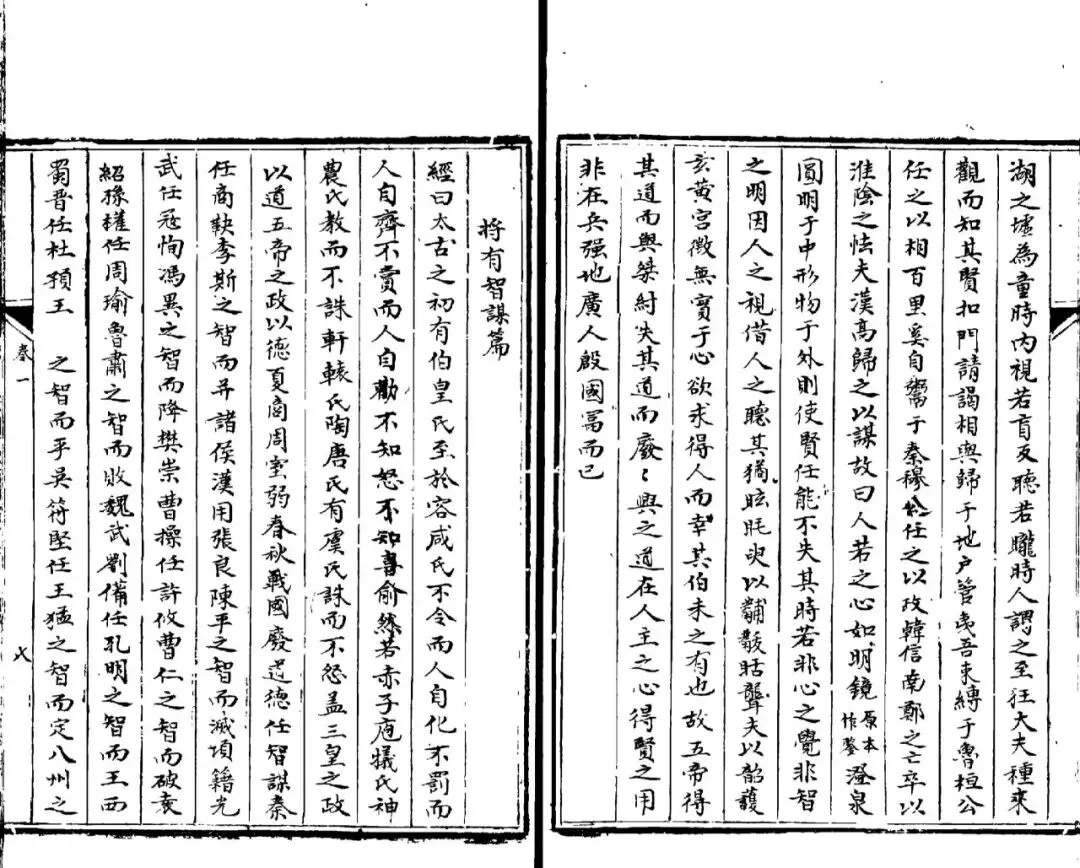 湖之墟為童時內視若盲反聽若矓時人謂之至狂大夫種來
觀而知其賢扣門請謁相與歸于地戶管夷吾束縛于魯桓公
任之以相百里奚自鬻于秦穆公任之以政韓信南鄭之亡卒以
淮陰之怯夫漢高歸之以謀故曰人若之心如明鏡原本作鑒澄泉
圓明于中形物于外則使賢任能不失其時若非心之覺非智
之明因人之視借人之聽其猶眩眊叟以黼黻聒聾夫以韶護
玄黃宮徵無實于心欲求得人而幸其伯未之有也故五帝得
其道而興桀紂失其道而廢〻興之道在人主之心得賢之用
非在兵强地廣人殷國冨而已
將有智謀篇
經曰太古之初有伯皇氏至於容咸氏不令而人自化不罰而
人自齊不賞而人自勸不知怒不知喜俞然若赤子庖犧氏神
農氏教而不誅軒轅氏陶唐氏有虞氏誅而不怒盖三皇之政
以道五帝之政以德夏商周室弱春秋戰國廢道德任智謀秦
任商鞅李斯之智而并諸侯漢用張良陳平之智而滅項籍光
武任寇恂馮異之智而降樊崇曹操任許攸曹仁之智而破袁
紹孫權任周瑜魯肅之智而敗魏武劉備任孔明之智而王西
蜀晋任杜預王 之智而平吳符堅任王猛之智而定八州之
卷一